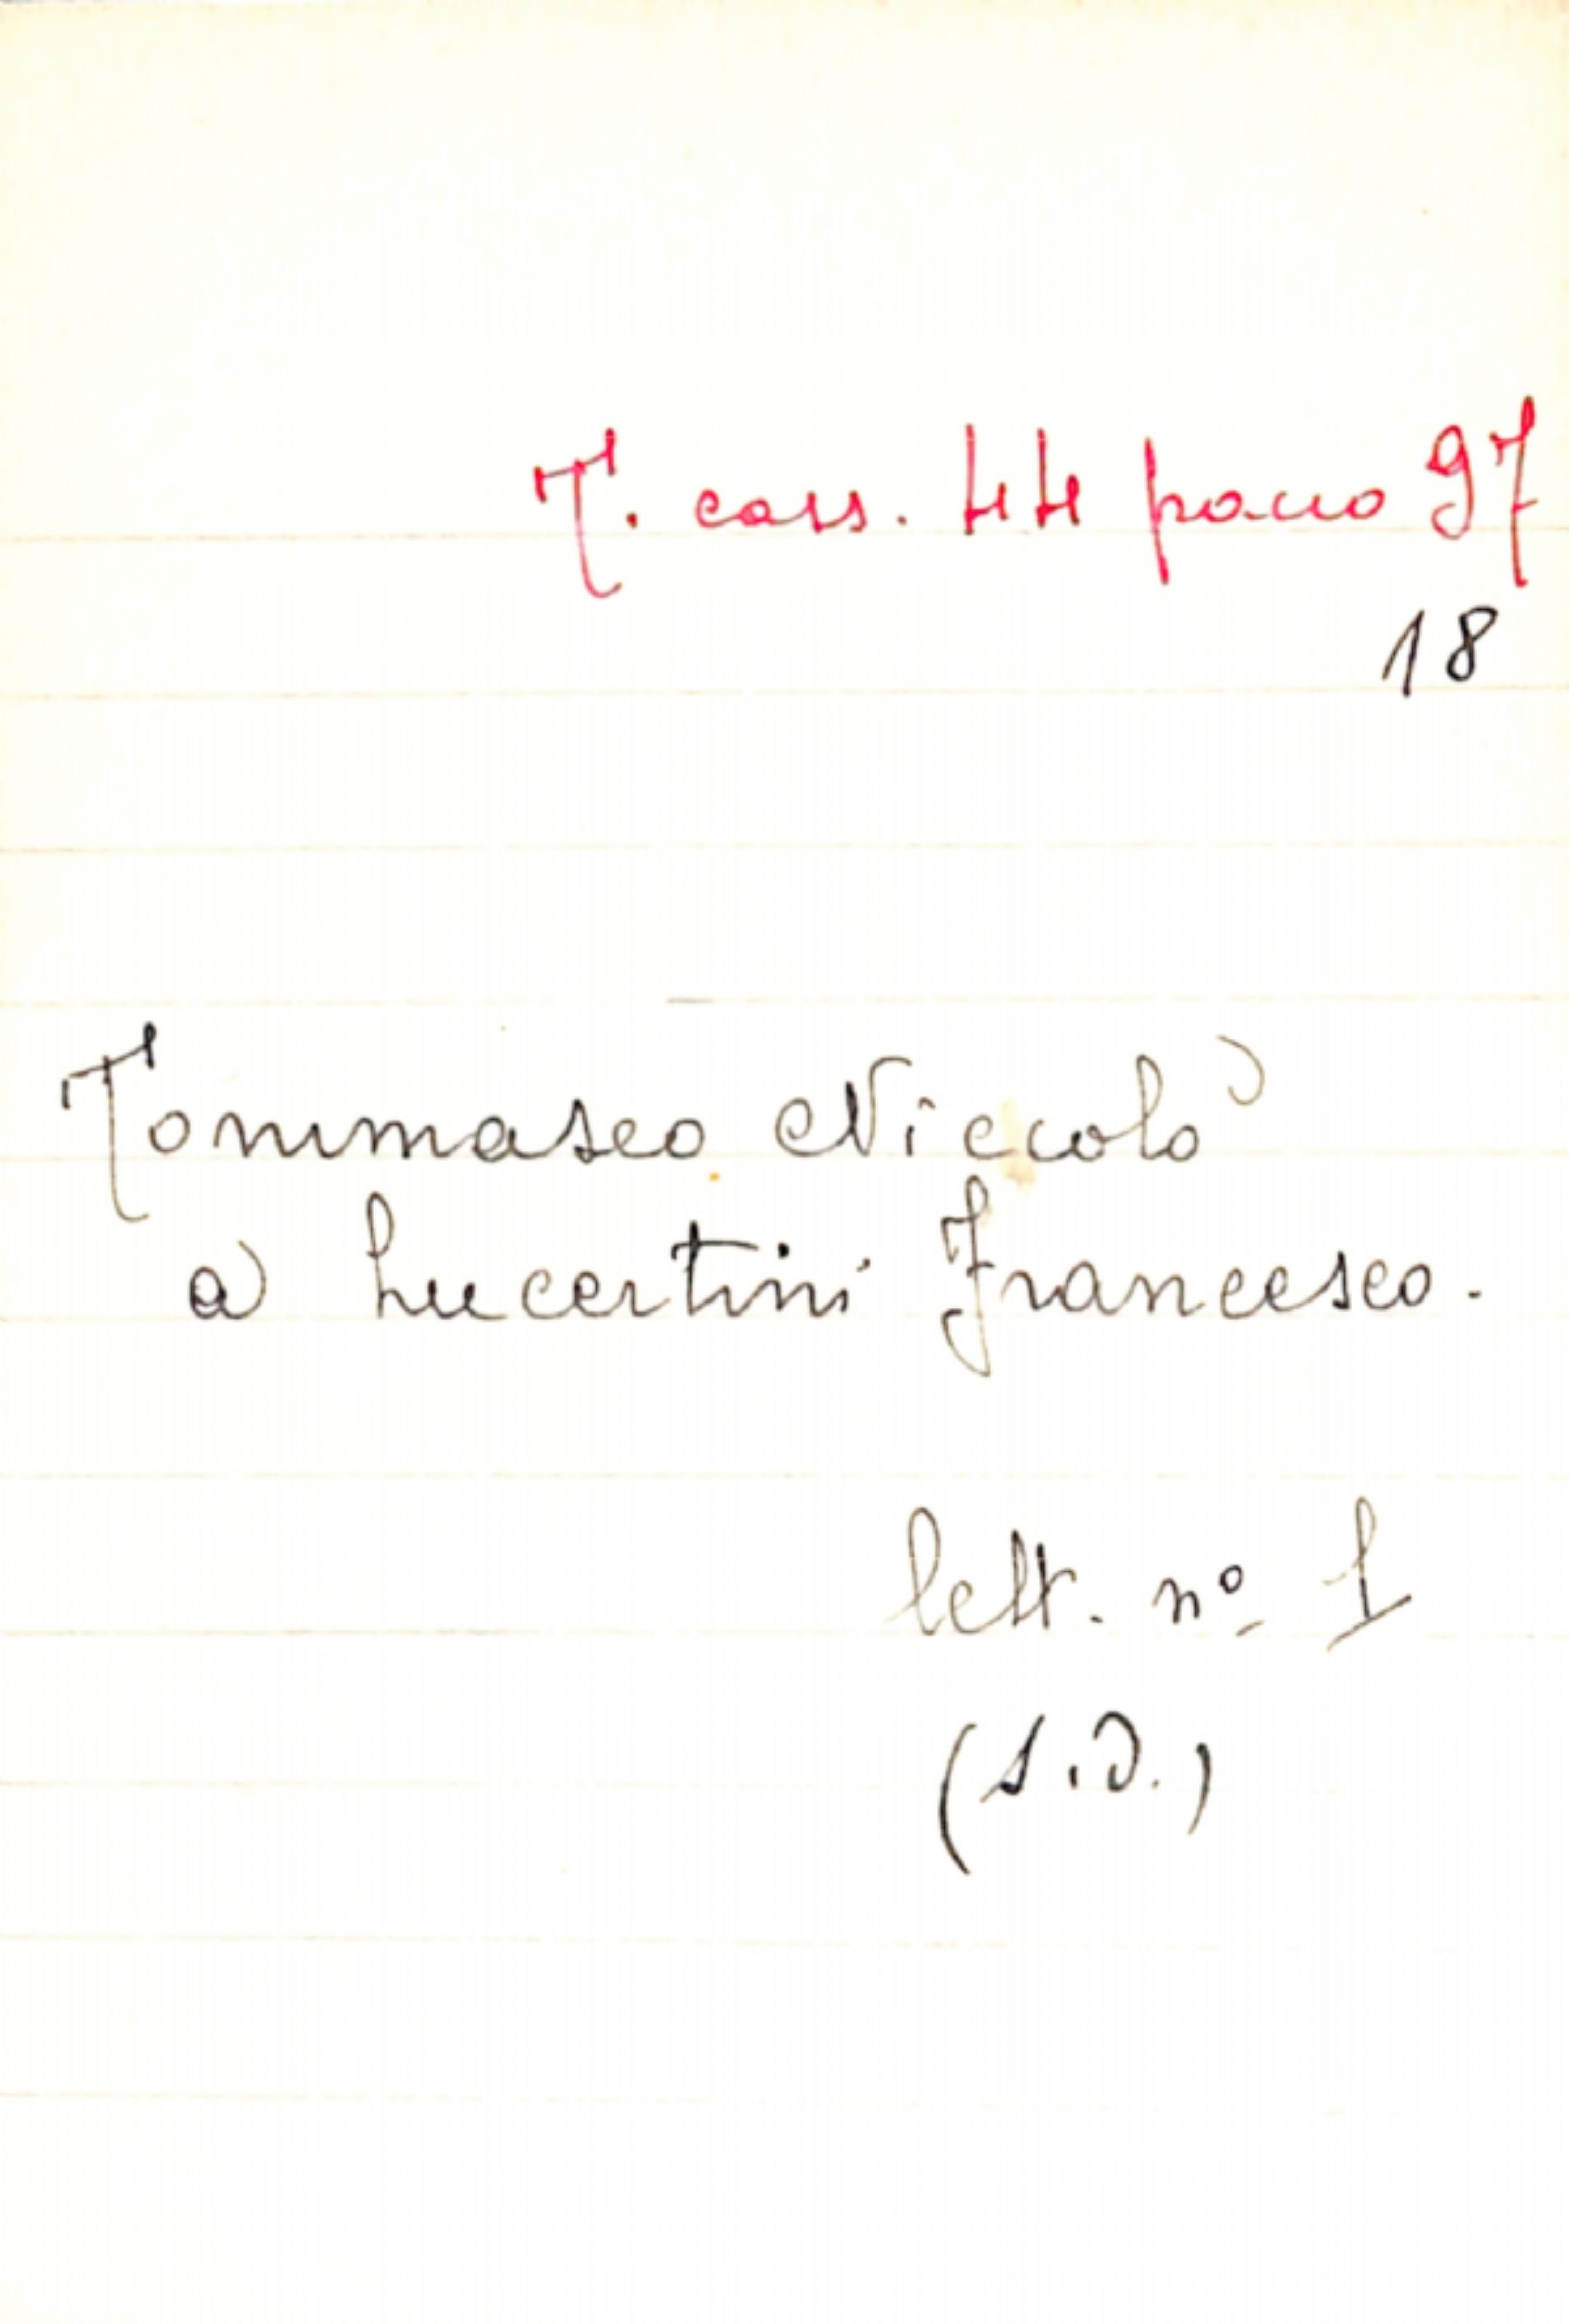 T. cass. 44 pacco 97
18
Tommaseo Niccolò
a Lucertini Francesco.
lett. nº 1
(s.d.)